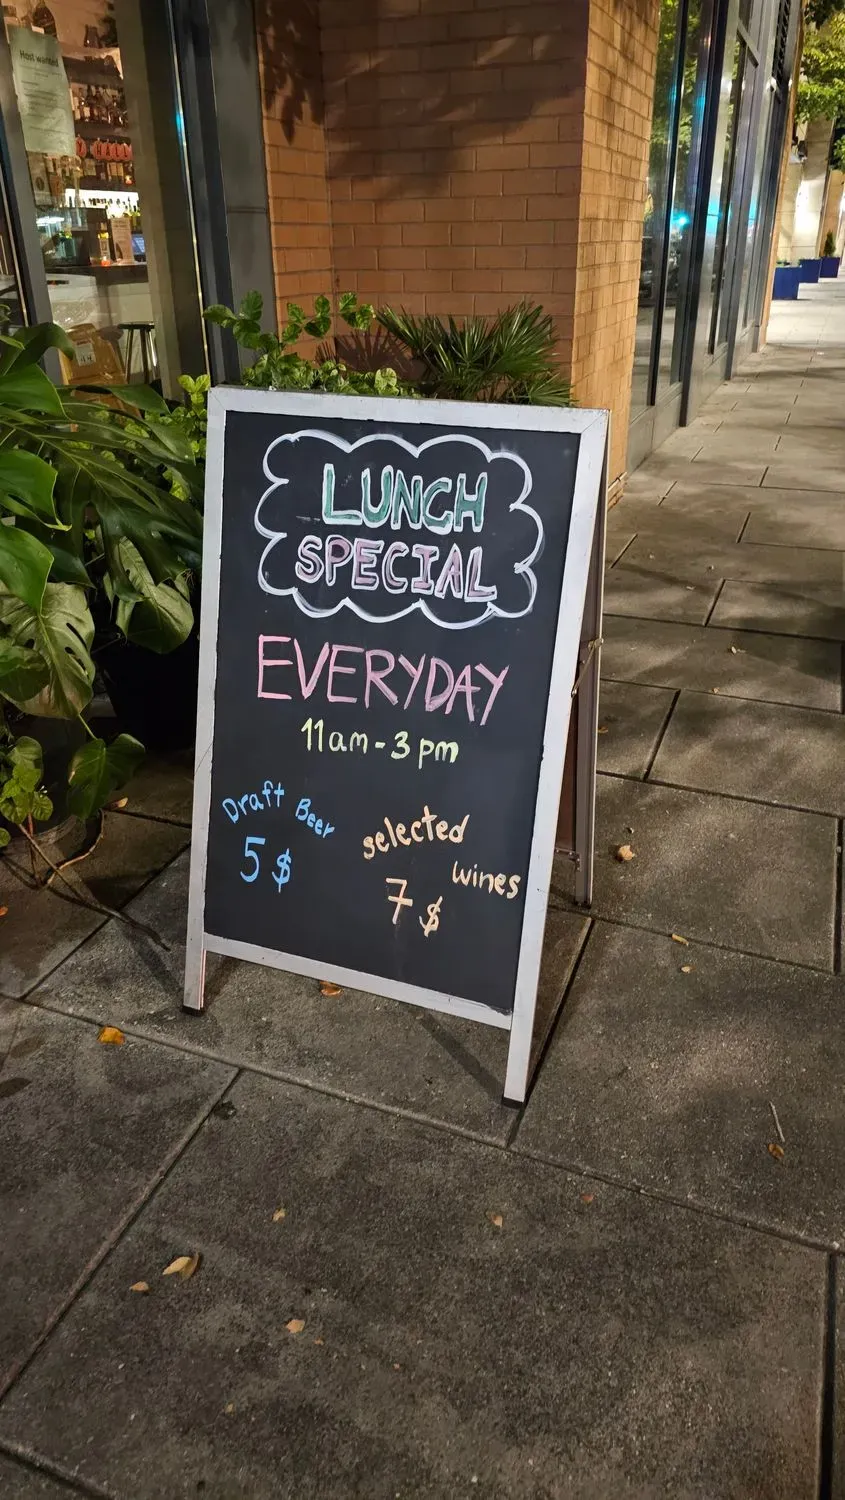 Host wanted
LUNCH
SPECIAL
EVERYDAY
11am - 3pm
Draft Beer
5 $
selected
wines
7 $